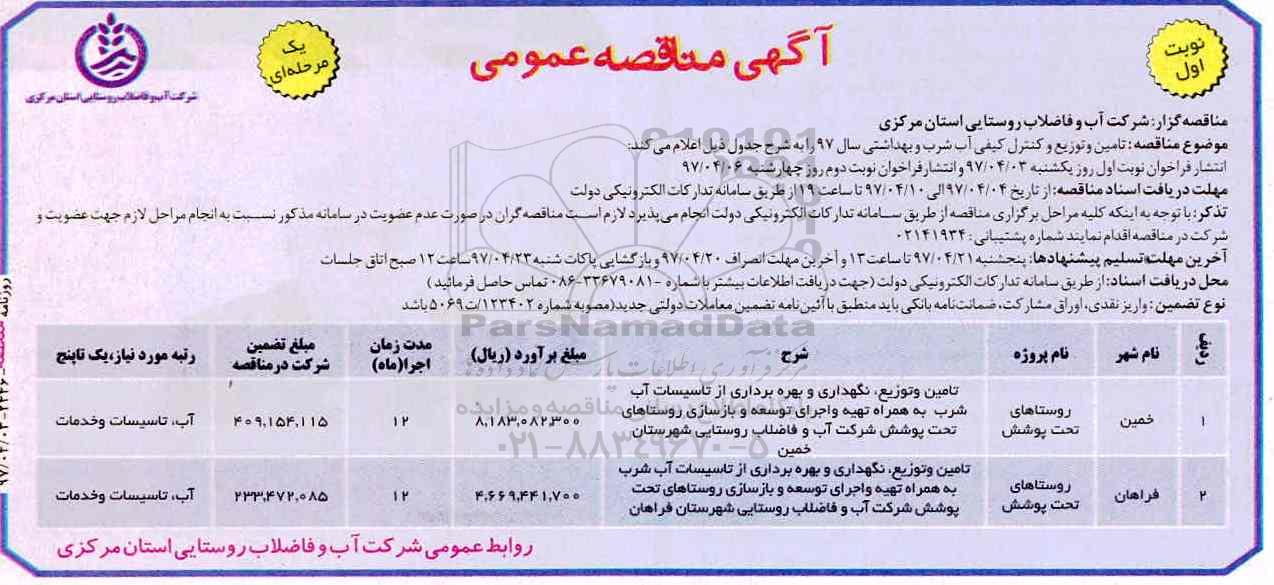 آگهی مناقصه عمومی
نوبت اول
یک مرحله‌ای
شرکت آب و فاضلاب روستایی استان مرکزی
مناقصه گزار: شرکت آب و فاضلاب روستایی استان مرکزی
موضوع مناقصه: تامین و توزیع و کنترل کیفی آب شرب و بهداشتی سال ۹۷ را به شرح جدول ذیل اعلام می‌کند:
انتشار فراخوان نوبت اول روز یکشنبه ۹۷/۰۴/۰۳ و انتشار فراخوان نوبت دوم روز چهارشنبه ۹۷/۰۴/۰۶
مهلت دریافت اسناد مناقصه: از تاریخ ۹۷/۰۴/۰۴ الی ۹۷/۰۴/۱۰ تا ساعت ۱۹ از طریق سامانه تدارکات الکترونیکی دولت
تذکر: با توجه به اینکه کلیه مراحل برگزاری مناقصه از طریق سامانه تدارکات الکترونیکی دولت انجام می‌پذیرد لازم است مناقصه گران در صورت عدم عضویت در سامانه مذکور نسبت به انجام مراحل لازم جهت عضویت و
شرکت در مناقصه اقدام نمایند شماره پشتیبانی: ۰۲۱۴۱۹۳۴
آخرین مهلت تسلیم پیشنهادها: پنجشنبه ۹۷/۰۴/۲۱ تا ساعت ۱۳ و آخرین مهلت انصراف ۹۷/۰۴/۲۰ و بازگشایی پاکات شنبه ۹۷/۰۴/۲۳ ساعت ۱۲ صبح اتاق جلسات
محل دریافت اسناد: از طریق سامانه تدارکات الکترونیکی دولت (جهت دریافت اطلاعات بیشتر با شماره ۳۳۶۷۹۰۸۱-۰۸۶ تماس حاصل فرمائید)
نوع تضمین: واریز نقدی، اوراق مشارکت، ضمانت‌نامه بانکی باید منطبق با آئین نامه تضمین معاملات دولتی جدید (مصوبه شماره ۱۲۳۴۰۲/ت۵۰۶۹ باشد
ردیف نام شهر نام پروژه شرح مبلغ برآورد (ریال) مدت زمان اجرا(ماه) مبلغ تضمین شرکت در مناقصه رتبه مورد نیاز، یک تا پنج
۱ خمین روستاهای تحت پوشش تامین وتوزیع، نگهداری و بهره برداری از تاسیسات آب شرب به همراه تهیه واجرای توسعه و بازسازی روستاهای تحت پوشش شرکت آب و فاضلاب روستایی شهرستان خمین ۸,۱۸۳,۰۸۲,۳۰۰ ۱۲ ۴۰۹,۱۵۴,۱۱۵ آب، تاسیسات وخدمات
۲ فراهان روستاهای تحت پوشش تامین وتوزیع، نگهداری و بهره برداری از تاسیسات آب شرب به همراه تهیه واجرای توسعه و بازسازی روستاهای تحت پوشش شرکت آب و فاضلاب روستایی شهرستان فراهان ۴,۶۶۹,۴۴۱,۷۰۰ ۱۲ ۲۳۳,۴۷۲,۰۸۵ آب، تاسیسات وخدمات
روابط عمومی شرکت آب و فاضلاب روستایی استان مرکزی
ParsNamadData
۰۲۱-۸۸۳۴۹۶۷۰-۵